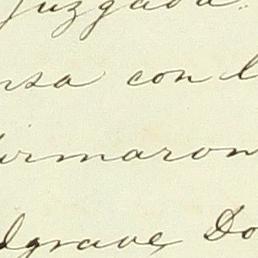 juzgada.
nsa con l
firmaron
dgrave Do